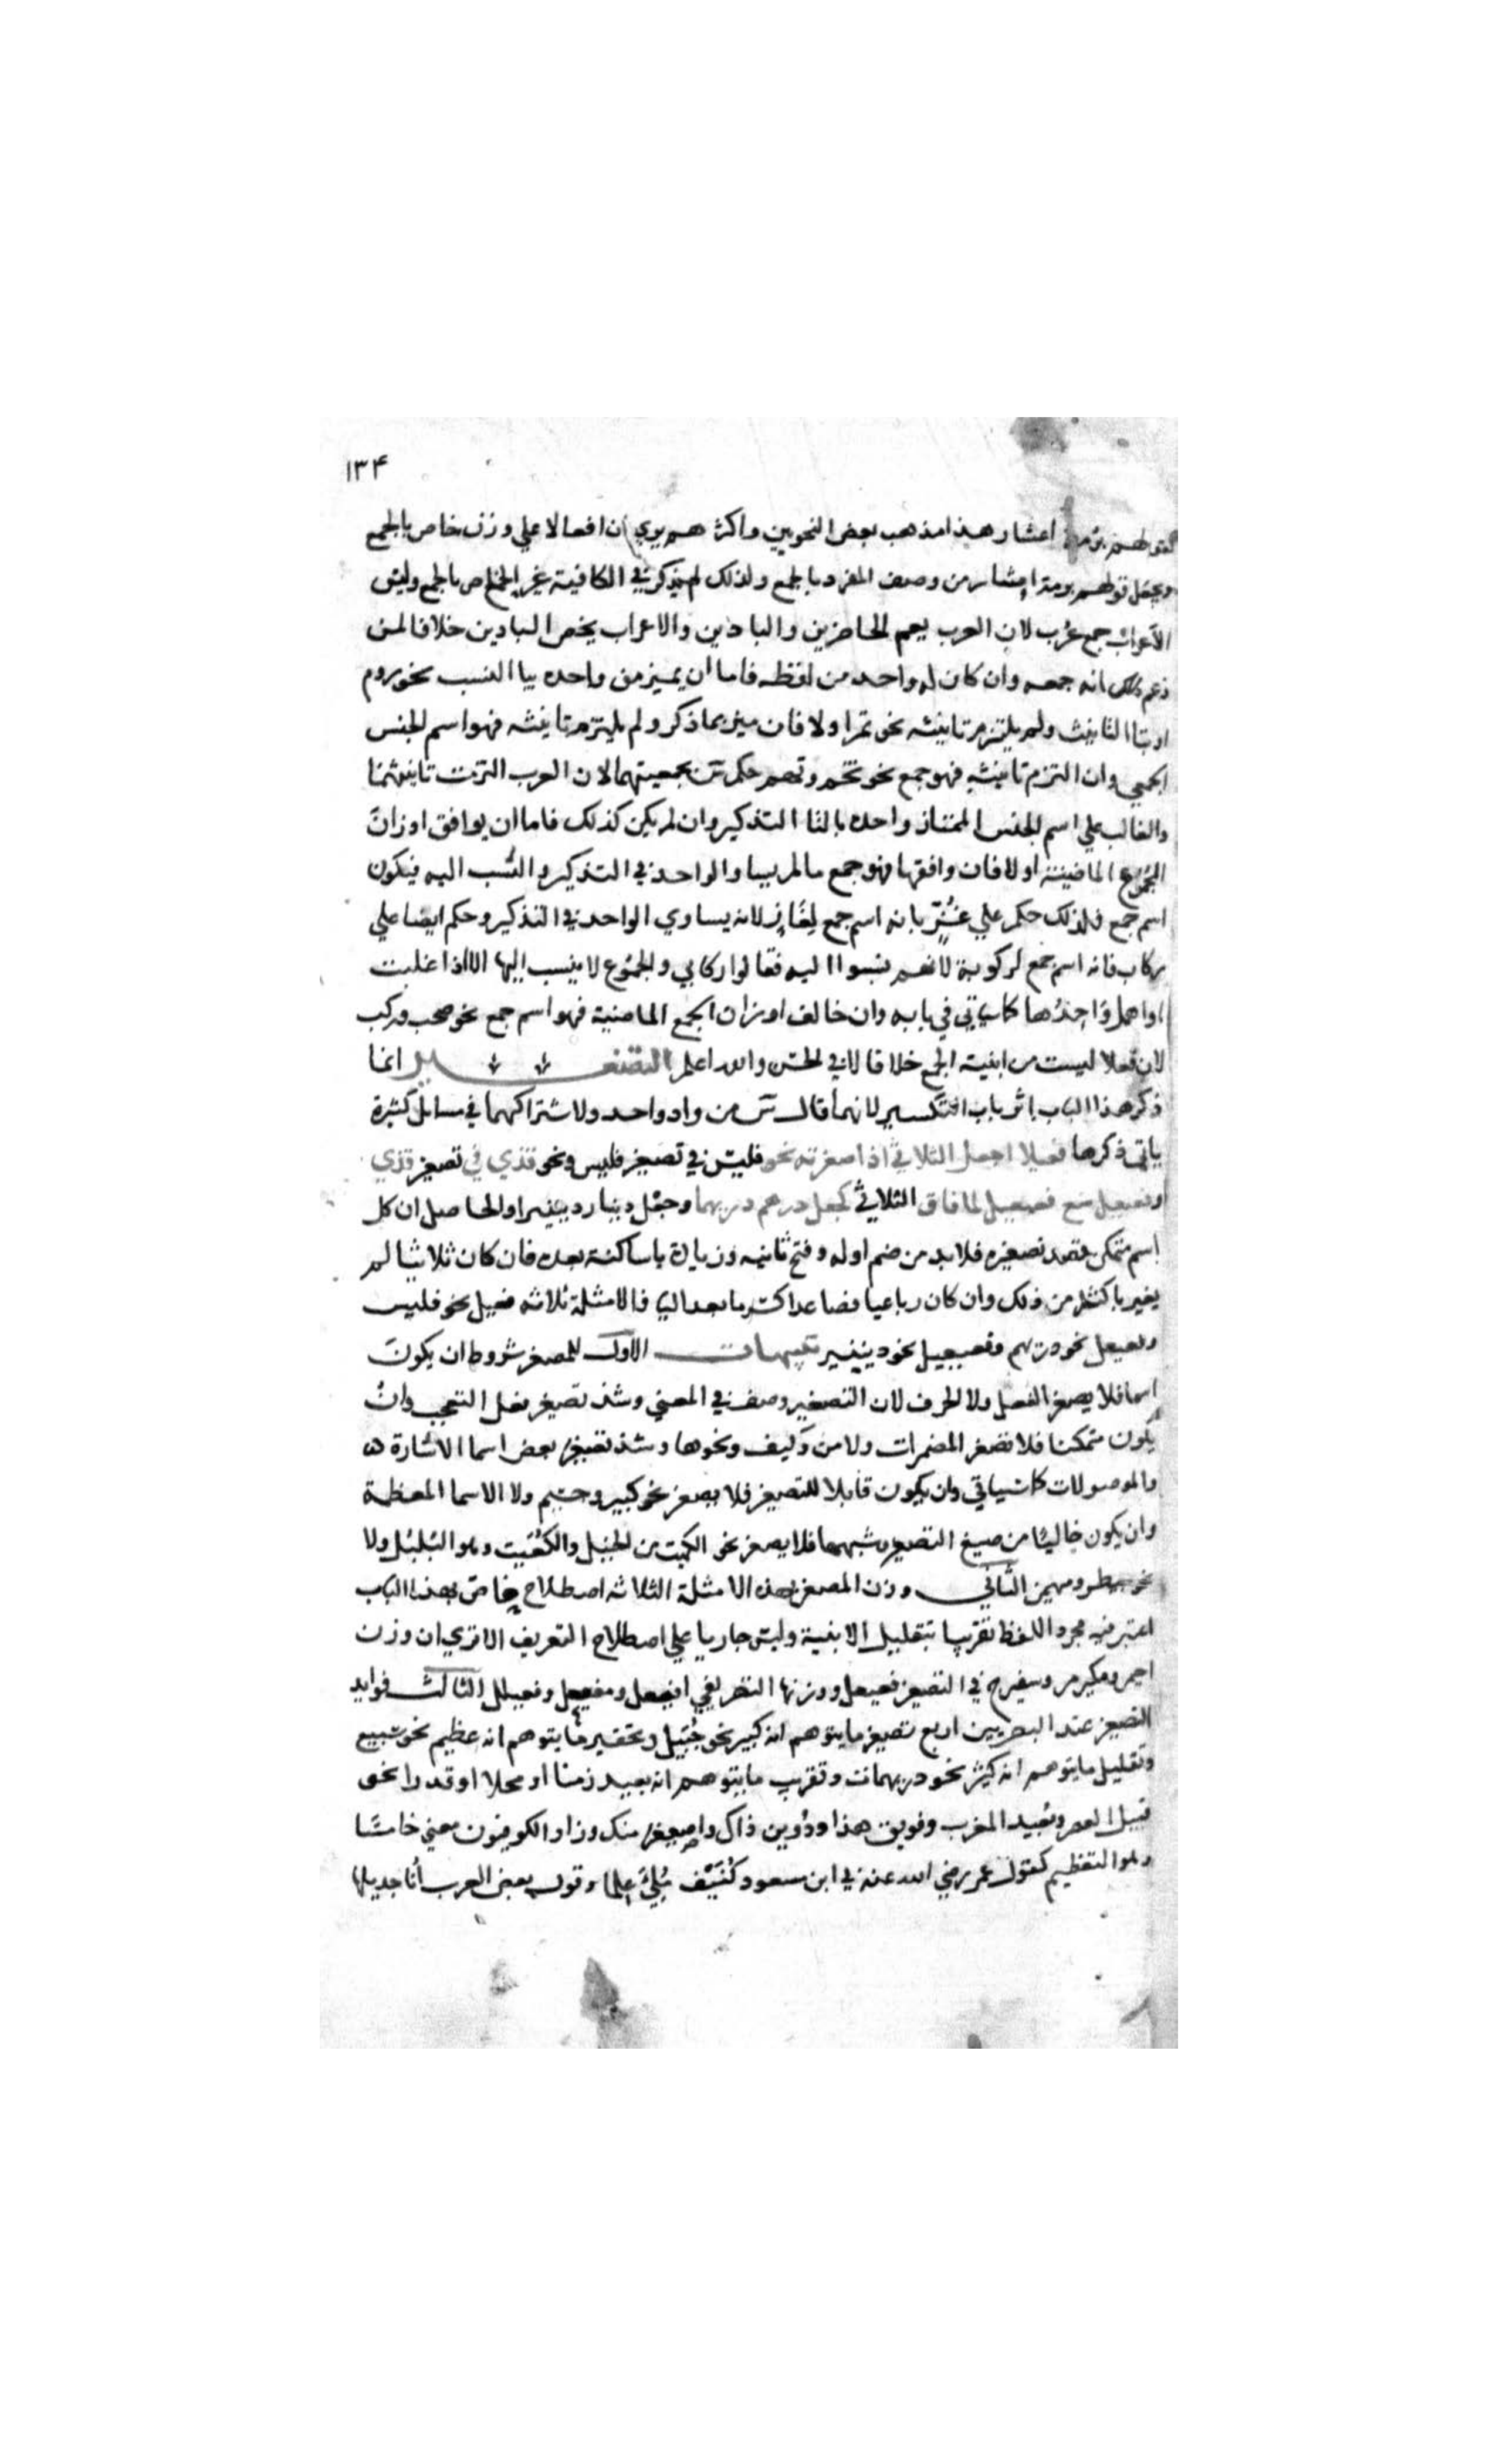 ١٣٤
كقولهم برمة اعشار هذا مذهب بعض النحويين واكثرهم يري ان افعالا علي وزن خاص بالجمع
ويجعل قولهم برمة اعشار من وصف المفرد بالجمع ولذلك لم يذكر في الكافية غير الخاص بالجمع وليس
الاعراب جمع عرب لان العرب يعم الحاضرين والبادين والاعراب يخص البادين خلافا لمن
زعم انه جمعه وان كان له واحد من لفظه فاما ان يميز من واحده بيا النسب نحو روم
او بتا التانيث ولم يلتزم تانيثه نحو تمر اولا فان ميز بما ذكر ولم يلتزم تانيثه فهو اسم الجنس
الجمعي وان التزم تانيثه فهو جمع نحو تخم وتهم حكم س بجمعيتهما لان العرب التزمت تانيثهما
والغالب علي اسم الجنس الممتاز واحده بالتا التذكير وان لم يكن كذلك فاما ان يوافق اوزان
الجموع الماضية اولا فان وافقها فهو جمع ما لم يساو الواحد في التذكير والنسب اليه فيكون
اسم جمع فلذلك حكم علي غزي بانه اسم جمع لغاز لانه يساوي الواحد في التذكير وحكم ايضا علي
ركاب فانه اسم جمع لركوبة لانهم نسبوا اليه فقالوا ركابي والجموع لا ينسب اليها الا اذا غلبت
او اهمل واحدها كما سياتي في بابه وان خالف اوزان الجمع الماضية فهو اسم جمع نحو صحب وركب
لان فعلا ليست من ابنية الجمع خلافا لابي الحسن والله اعلم التصغير انما
ذكر هذا الباب اثر باب التكسير لانهما قال س من واد واحد ولاشتراكهما في مسايل كثيرة
ياتي ذكرها فعيلا اجعل الثلاثي اذا صغرته نحو فليس في تصغير فلس ونحو قذي في تصغير قذي
وفعيعل مع فعيعيل لما فاق الثلاثي كجعل درهم دريهما وجعل دينار دنينيرا والحاصل ان كل
اسم متمكن قصد تصغيره فلا بد من ضم اوله وفتح ثانيه وزيادة يا ساكنة بعده فان كان ثلاثيا لم
يغير باكثر من ذلك وان كان رباعيا فصاعدا كسر ما بعد اليا فالامثلة ثلاثة فعيل نحو فليس
وفعيعل نحو دريهم وفعيعيل نحو دنينير تنبيهات الاول للمصغر شروط ان يكون
اسما فلا يصغر الفعل ولا الحرف لان التصغير وصف في المعني وشذ تصغير فعل التعجب وان
يكون متمكنا فلا تصغر المضمرات ولا من وكيف ونحوها وشذ تصغير بعض اسما الاشارة
والموصولات كما سياتي وان يكون قابلا للتصغير فلا يصغر نحو كبير وجسيم ولا الاسما المعظمة
وان يكون خاليا من صيغ التصغير وشبهها فلا يصغر نحو الكميت من الخيل والكعيت وهو البلبل ولا
نحو مبيطر ومهيمن الثاني وزن المصغر بهذه الامثلة الثلاثة اصطلاح خاص بهذا الباب
اعتبر فيه مجرد اللفظ تقريبا بتقليل الابنية وليس جاريا علي اصطلاح التعريف الا تري ان وزن
احيمر ومكيرم وسفيرج في التصغير فعيعل ووزنها التصريفي افيعل ومفيعل وفعيلل الثالث فوايد
التصغير عند البصريين اربع تصغير ما يتوهم انه كبير نحو جبيل وتحقير ما يتوهم انه عظيم نحو سبيع
وتقليل ما يتوهم انه كثير نحو دريهمات وتقريب ما يتوهم انه بعيد زمنا او محلا او قدرا نحو
قبيل العصر وبعيد المغرب وفويق هذا ودوين ذاك واصيغر منك وزاد الكوفيون معني خامسا
وهو التعظيم كقول عمر رضي الله عنه في ابن مسعود كنيف ملي علما وقول بعض العرب انا جذيلها